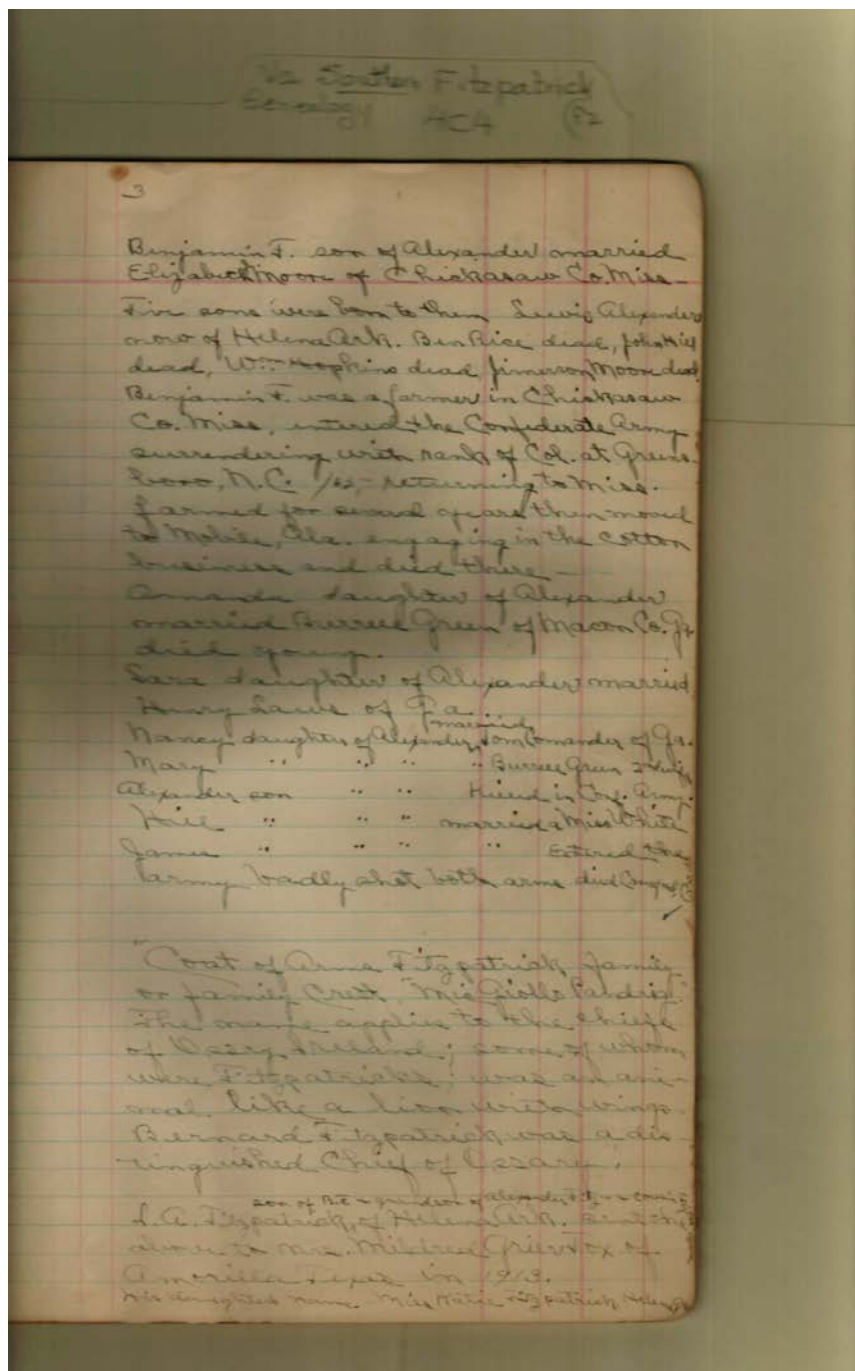 Southern Fitzpatrick
Genealogy AC4 (F2
3
Benjamin F. son of Alexander married
Elizabeth Moore of Chickasaw Co. Miss—
Five sons were born to them Lewis Alexander
now of Helena Ark. Ben Rice dead, John Hill
dead, Wm Hopkins dead, Jimerson Moore dead.
Benjamin F. was a farmer in Chickasaw
Co. Miss, entered the Confederate Army
surrendering with rank of Col. at Greens-
boro, N.C. returning to Miss.
farmed for several years then moved
to Mobile, Ala. engaging in the cotton
business and died there —
Amanda daughter of Alexander
married Burrell Green of Macon Co. Ga
died young.
Sara daughter of Alexander married
Henry Laws of Ga
married
Nancy daughter of Alexander, Tom Comander of Ga.
Mary " " " " Burrell Green 2nd wife
Alexander son " " Killed in Conf. Army.
Hill " " " married a Miss White
James " " " " Entered the
army badly shot both arms died
"Coat of Arms Fitzpatrick family
or family Crest, "Mic Giolla Pandrig."
The name applies to the chiefs
of Ossry Ireland; some of whom
were Fitzpatricks; was an ani-
mal like a lion with wings.
Bernard Fitzpatrick was a dis-
tinguished Chief of Ossary".
son of B.F. grandson of Alexander Fitz
L. A. Fitzpatrick, of Helena Ark. sent the
above to Mrs. Mildred Grier Fox of
Amorilla Texas in 1913.
his daughters name. Miss Katie Fitzpatrick Helena